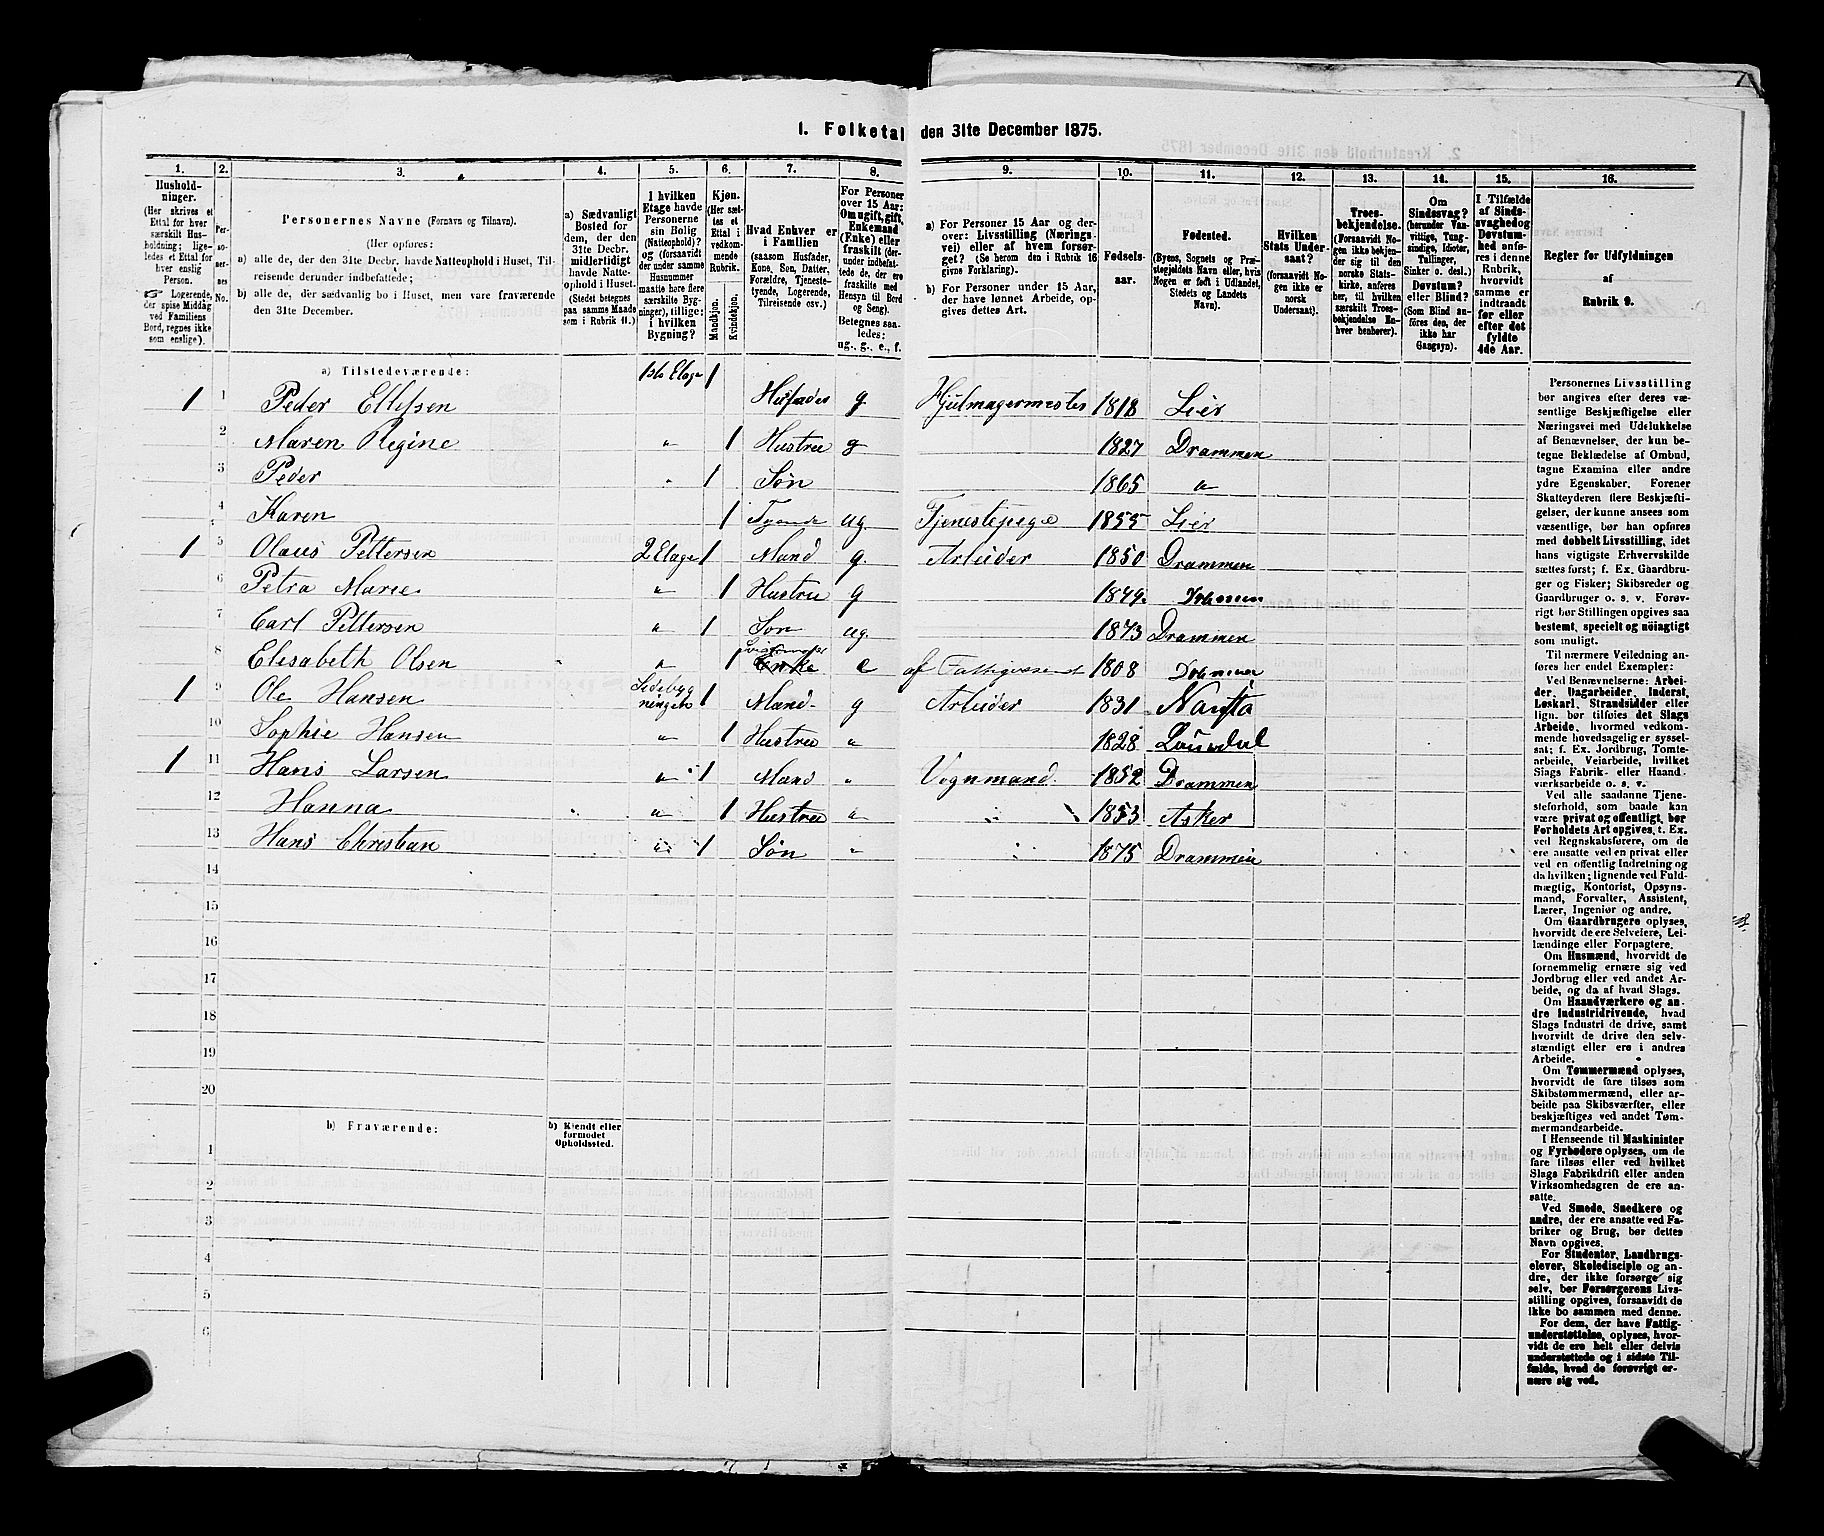 1. Folketal den 31te December 1875.
1. 2. 3. 4. 5. 6. 7. 8. 9. 10. 11. 12. 13. 14. 15. 16.
Hushold-
ninger.
(Her skrives et
Ettal for hver
særskilt Hus-
holdning; lige-
ledes et Ettal for
hver enslig
Person.
☞ Logerende,
der spise Middag
ved Familiens
Bord, regnes ikke
som enslige).
Per-
so-
ner-
nes
No.
Personernes Navne (Fornavn og Tilnavn).
(Her opføres:
a) alle de, der den 31te Decbr. havde Natteophold i Huset, Til-
reisende derunder indbefattede;
b) alle de, der sædvanlig bo i Huset, men vare fraværende
den 31te December.
a) Sædvanligt
Bosted for
dem, der den
31te Decbr.
midlertidigt
havde Natte-
ophold i Huset.
(Stedet betegnes
paa samme Maade
som i Rubrik 11.)
I hvilken
Etage havde
Personerne
sin Bolig
(Natteophold)?
og (forsaavidt
der under samme
Husnummer
maatte høre flere
særskilte Byg-
ninger), tillige:
i hvilken
Bygning?
Kjøn.
(Her sæt-
tes et
Ettal i
vedkom-
mende
Rubrik.
Mandkjøn.
Kvindekjøn.
Hvad Enhver er
i Familien
(saasom Husfader,
Kone, Søn, Datter,
Forældre, Tjeneste-
tyende, Logerende,
Tilreisende osv.)
For Personer
over 15 Aar:
Om ugift, gift,
Enkemand
(Enke) eller
fraskilt (der-
under indbefat-
tede de, der ere
fraskilte med
Hensyn til Bord
og Seng).
Betegnes saa-
ledes:
ug., g., e., f.
a) For Personer 15 Aar og der-
over: Livsstilling (Nærings-
vei) eller af hvem forsør-
get? (Se herom den i Rubrik 16
givne Forklaring).
b) For Personer under 15 Aar,
der have lønnet Arbeide, op-
gives dettes Art.
Fødsels-
aar.
Fødested.
(Byens, Sognets og Præ-
stegjeldets Navn eller, hvis
Nogen er født i Udlandet,
Stedets og Landets
Navn).
Hvilken
Stats Under-
saat?
(forsaavidt No-
gen ikke er
norsk
Undersaat).
Troes-
bekjendelse.
(Forsaavidt No-
gen ikke bekjen-
der sig til den
norske Stats-
kirke, anføres
her, til hvilken
særskilt Troes-
bekjendelse En-
hver henhører).
Om
Sindssvag?
(herunder Van-
vittige, Tung-
sindige, Idioter,
Tullinger,
Sinker o. desl.)
Døvstum?
eller Blind?
(Som Blind an-
føres den, der
ikke har
Gangsyn).
I Tilfælde
af Sinds-
svaghed og
Døvstum-
hed anfø-
res i denne
Rubrik,
hvorvidt
samme er
indtraadt
før eller
efter det
fyldte
4de Aar.
Regler for Udfyldningen
af
Rubrik 9.
a) Tilstedeværende:
1 1 Peder Ellefsen 1ste Etage 1 Husfader g Hjulmagermester 1818 Lier
2 Maren Regine " 1 Hustru g 1827 Drammen
3 Peder " 1 Søn 1865 "
4 Karen 1 Tyende ug. Tjenestepige 1855 Lier
1 5 Olaus Pettersen 2 Etage 1 Mand g. Arbeider 1850 Drammen
6 Petra Marie " 1 Hustru g 1849 Drammen
7 Carl Pettersen " 1 Søn ug. 1873 Drammen
8 Elisabeth Olsen " 1 Enke e af Fattigvesenet 1808 Drammen
1 9 Ole Hansen Sidebyg ningen 1 Mand g Arbeider 1831
10 Sophie Hansen " 1 Hustru " 1828
1 11 Hans Larsen " 1 Mand " Vognmand 1852 Drammen
12 Hanna " 1 Hustru " 1853 Asker
13 Hans Christian " 1 Søn " 1875 Drammen
14
15
16
17
18
19
20
b) Fraværende:
b) Kjendt eller
formodet
Opholdssted.
1
2
3
4
5
6
Personernes Livsstilling
bør angives efter deres væ-
sentlige Beskjæftigelse eller
Næringsvei med Udelukkelse
af Benævnelser, der kun be-
tegne Beklædelse af Ombud,
tagne Examina eller andre
ydre Egenskaber. Forener
Skatteyderen flere Beskjæfti-
gelser, der kunne ansees som
væsentlige, bør han opføres
med dobbelt Livsstilling, idet
hans vigtigste Erhvervskilde
sættes først; f. Ex. Gaardbru-
ger og Fisker; Skibsreder og
Gaardbruger o. s. v. Forøv-
rigt bør Stillingen opgives saa
bestemt, specielt og nöiagtigt
som muligt.
Til nærmere Veiledning an-
føres her endel Exempler:
Ved Benævnelserne: Arbei-
der, Dagarbeider, Inderst,
Løskarl, Strandsidder eller
lign. bør tilføies det Slags
Arbeide, hvormed vedkom-
mende hovedsagelig er syssel-
sat; f. Ex. Jordbrug, Tomte-
arbeide, Veiarbeide, hvilket
Slags Fabrik- eller Haand-
værksarbeide o. s. v.
Ved alle saadanne Tjene-
steforhold, som baade kan
være privat og offentligt, bør
Forholdets Art opgives, t. Ex.
ved Regnskabsførere, om de
ere ansatte ved en privat eller
ved en offentlig Indretning og
da hvilken; lignende ved Fuld-
mægtig, Kontorist, Opsyns-
mand, Forvalter, Assistent,
Lærer, Ingeniør og andre.
Om Gaardbrugere oplyses,
hvorvidt de ere Selveiere, Lei-
lændinge eller Forpagtere.
Om Husmænd, hvorvidt de
fornemmelig ernære sig ved
Jordbrug eller ved andet Ar-
beide, og da af hvad Slags.
Om Haandværkere og an-
dre Industridrivende, hvad
Slags Industri de drive, samt
hvorvidt de drive den selv-
stændigt eller ere i andres
Arbeide.
Om Tømmermænd oplyses,
hvorvidt de fare tilsøs som
Skibstømmermænd, eller ar-
beide paa Skibsværfter, eller
beskjæftiges ved andet Tøm-
mermandsarbeide.
I Henseende til Maskinister
og Fyrbødere oplyses, om de
fare tilsøs eller ved hvilket
Slags Fabrikdrift eller anden
Virksomhedsgren de ere an-
satte.
Ved Smede, Snedkere og
andre, der ere ansatte ved Fa-
briker og Brug, bør dettes
Navn opgives.
For Studenter, Landbrugs-
elever, Skoledisciple og an-
dre, der ikke forsørge sig
selv, bør Forsørgerens Livs-
stilling opgives, forsaavidt de
ikke bo sammen med denne.
For dem, der have Fattig-
understøttelse, oplyses, hvor-
vidt de ere helt eller delvis
understøttede og i sidste Til-
fælde, hvad de forøvrigt er-
nære sig ved.